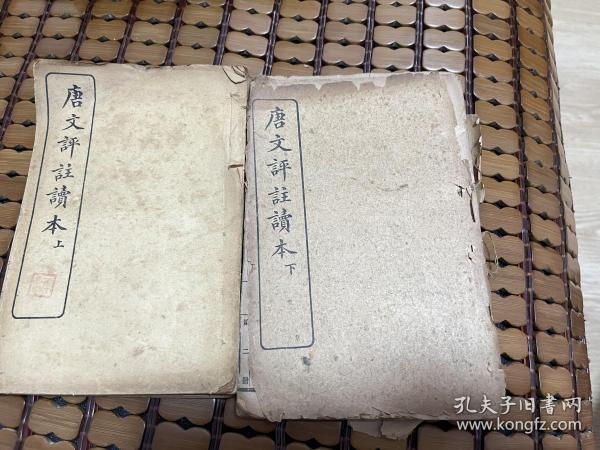 唐文評註讀本上
唐文評註讀本下
二
冊
孔夫子旧书网
www.kongfz.com